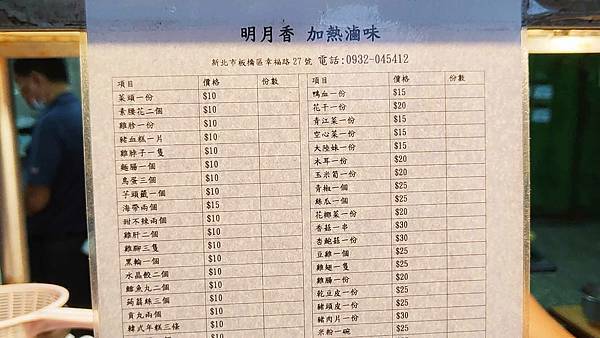 明月香 加熱滷味
新北市板橋區幸福路27號 電話:0932-045412
項目 價格 份數
菜頭一份 $10
素腰花二個 $10
雞胗一份 $10
豬血糕一片 $10
雞脖子一隻 $10
麵腸一個 $10
鳥蛋三個 $10
芋頭籤一個 $10
海帶兩個 $15
甜不辣兩個 $10
雞肝二個 $10
雞腳三隻 $10
黑輪一個 $10
水晶餃二個 $10
鱈魚丸二個 $10
蒟蒻絲三個 $10
貢丸兩個 $10
韓式年糕三條 $10
項目 價格 份數
鴨血一份 $15
花干一份 $20
青江菜一份 $15
空心菜一份 $15
大陸妹一份 $15
木耳一份 $20
玉米筍一份 $20
青椒一個 $25
絲瓜一個 $25
花椰菜一份 $20
香菇一串 $30
杏鮑菇一份 $30
豆雞一個 $25
雞翅一隻 $25
雞腸一份 $20
乾豆皮一份 $25
豬頭皮一份 $25
豬肉片一份 $30
米粉一碗 $25